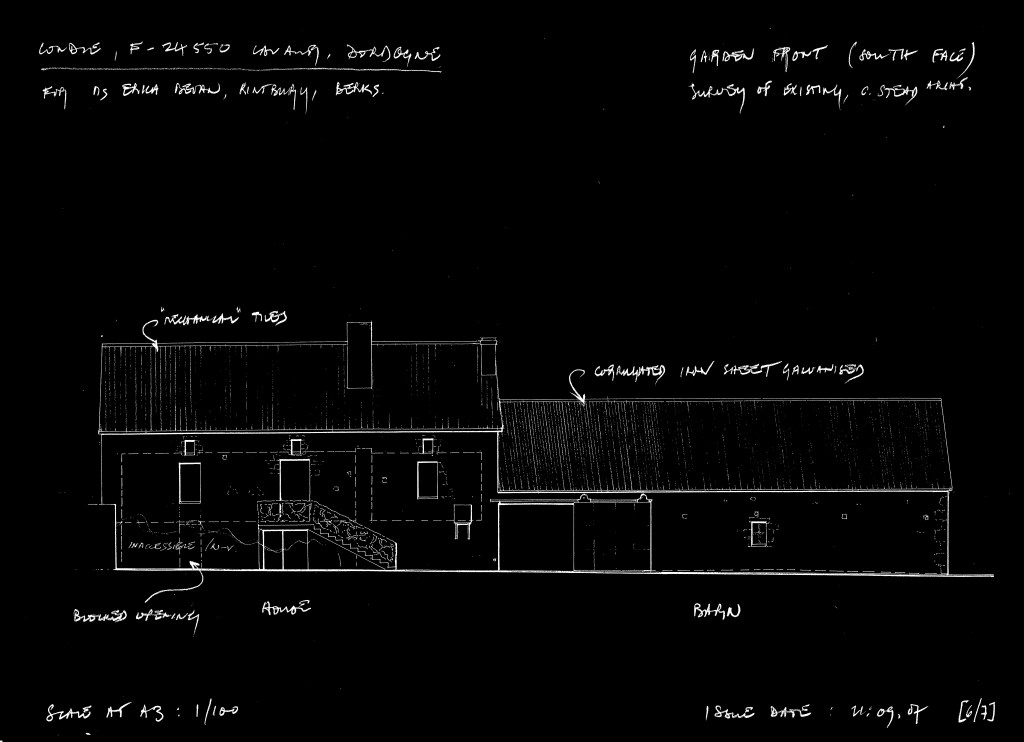 F-24550 DORDOGNE
FOR MS ERICA BEVAN, KINTBURY, BERKS.
GARDEN FRONT (SOUTH FACE)
SURVEY OF EXISTING, C. STEAD ARCHT.
"MECHANICAL" TILES
CORRUGATED IRON SHEET GALVANISED
INACCESSIBLE / N-V.
BLOCKED OPENING
HOUSE
BARN
SCALE AT A3 : 1/100
ISSUE DATE : 21.09.07 [6/7]